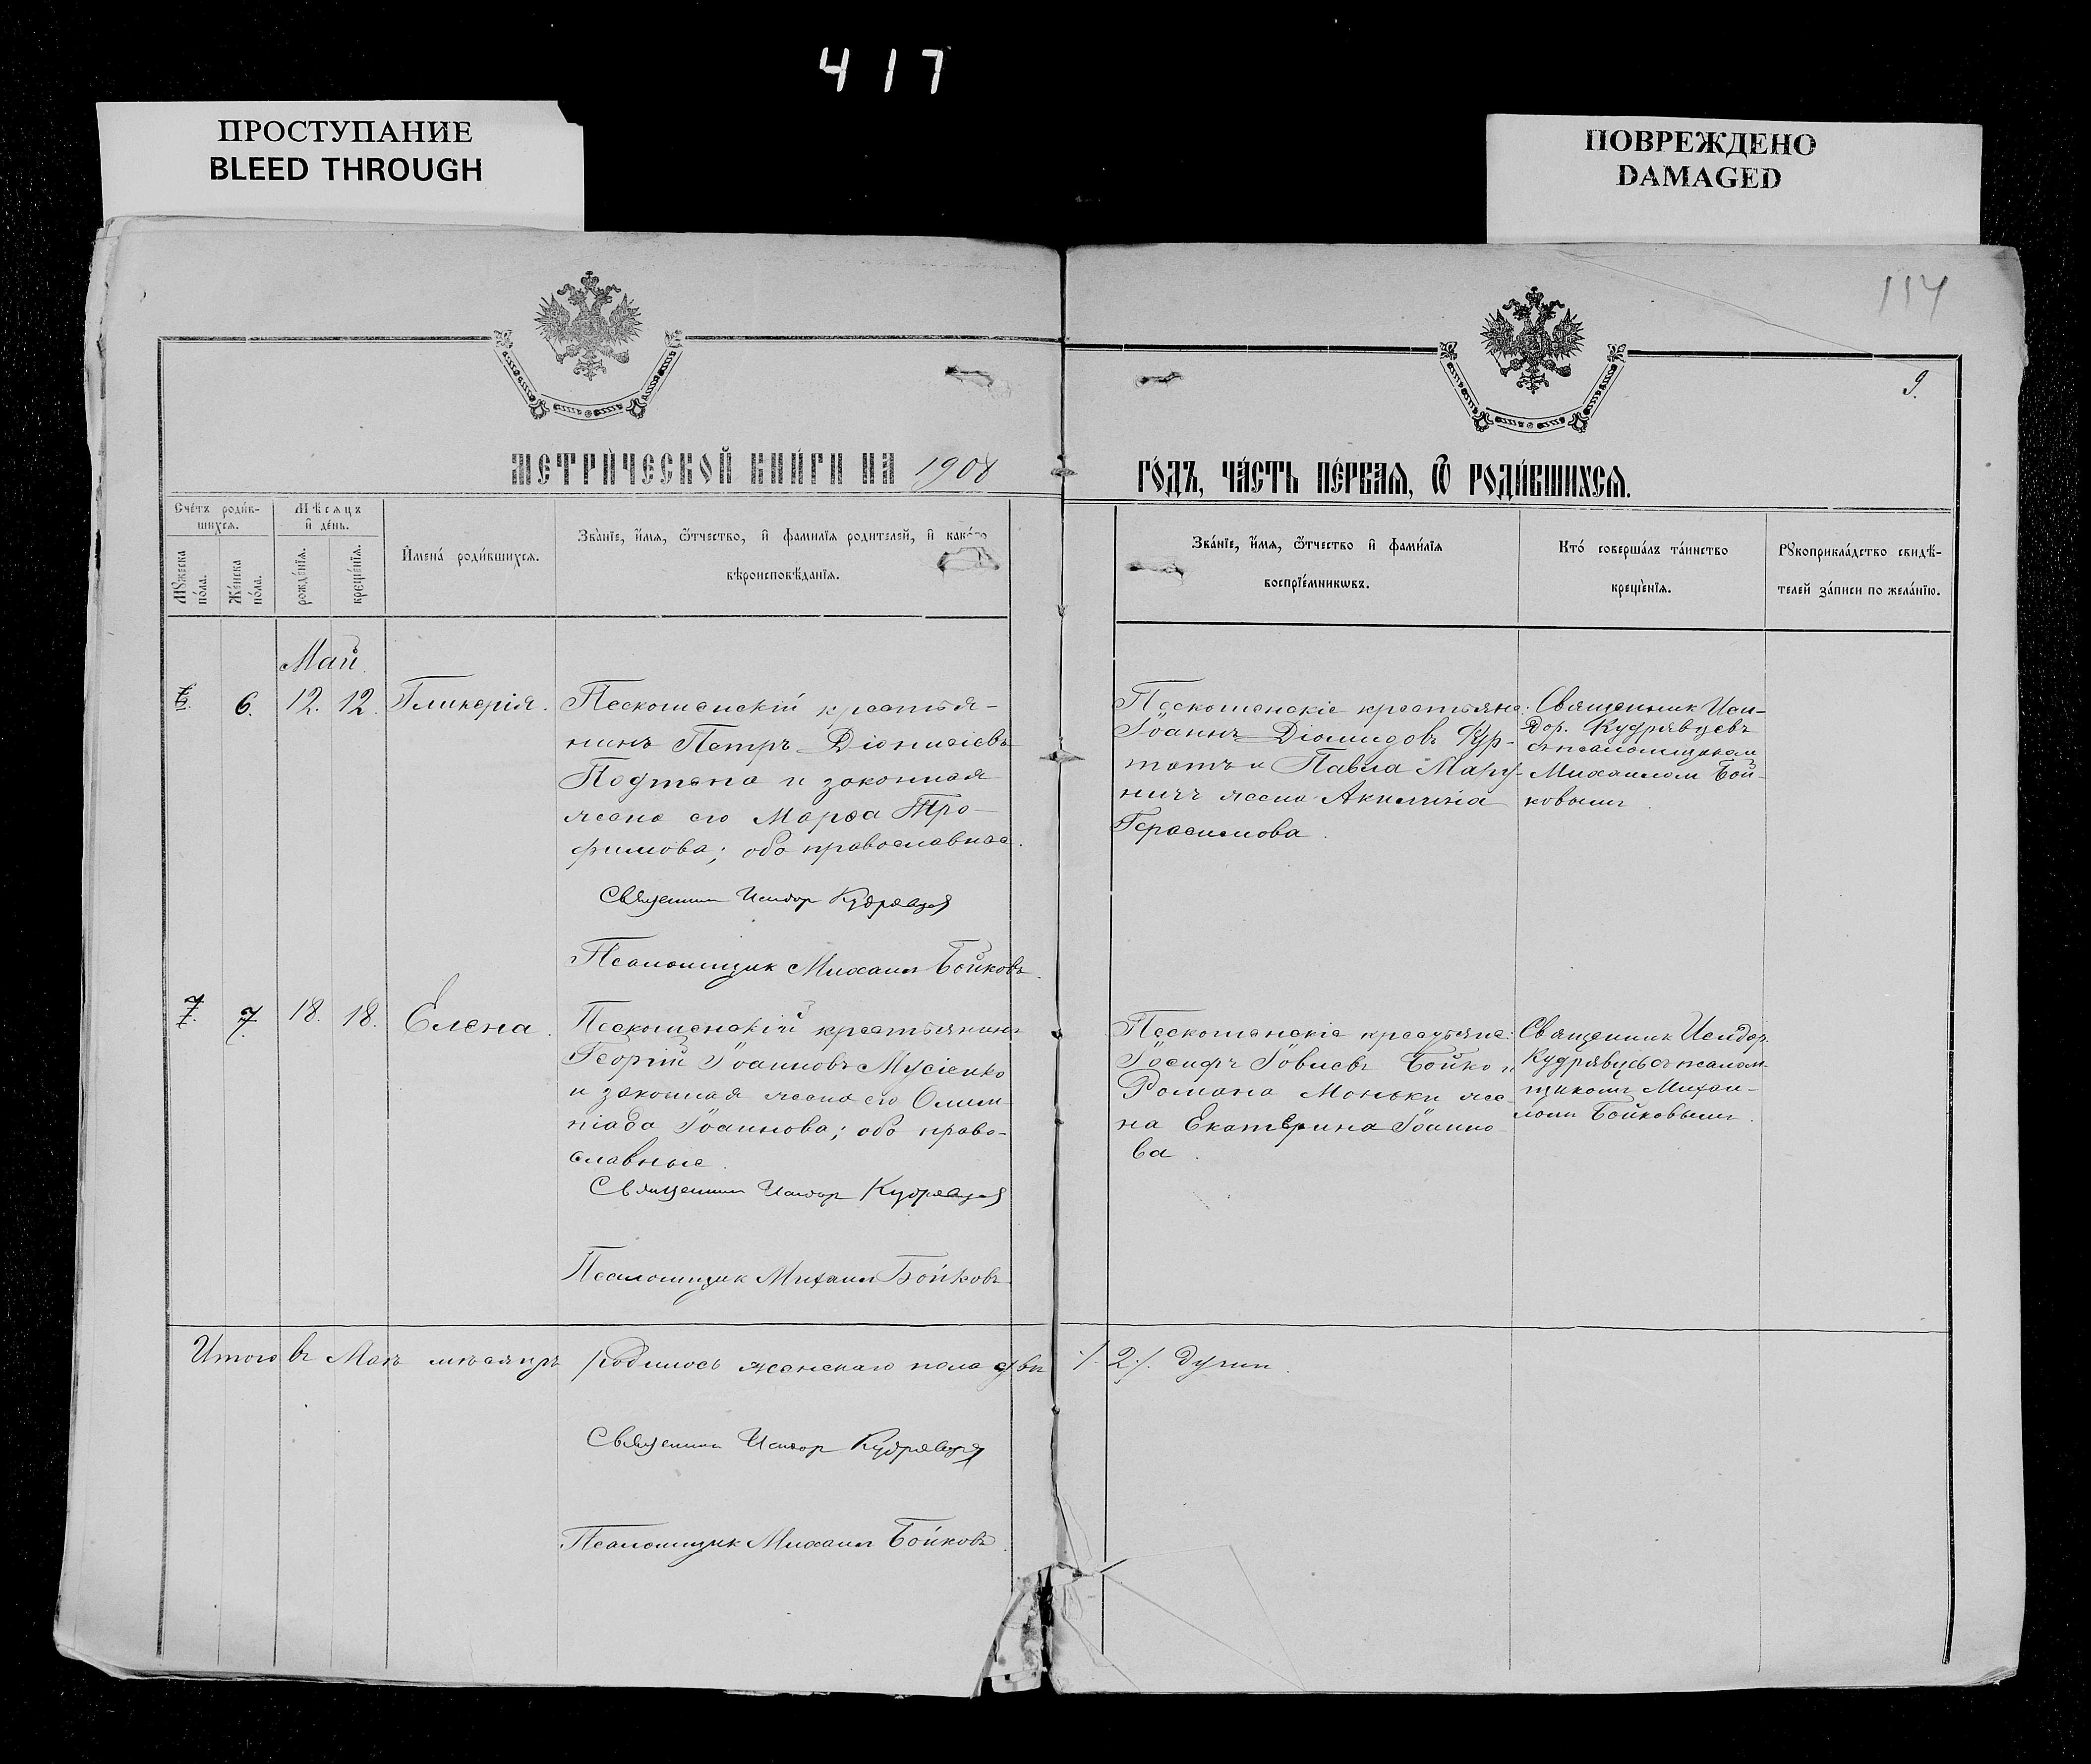 417
ПРОСТУПАНИЕ
BLEED THROUGH
ПОВРЕЖДЕНО
DAMAGED
114
9.
МЕТРИ́ЧЕСКОЙ КНИ́ГИ НА 1908
ГО́ДЪ, ЧА́СТЬ ПЕ́РВАЯ, Ѿ РОДИ́ВШИХСЯ.
Сче́тъ роди́в-
шихся.
Мѣсяцъ
и де́нь.
Мꙋжеска
по́ла.
Же́нска
по́ла.
рожде́нїя.
креще́нїя.
Имена́ роди́вшихся.
Зва́нїе, и́мя, ѿтчество, и фами́лїя родителей, и како́го
вѣроисповѣ́данїя.
Зва́нїе, и́мя, ѿтчество и фами́лїя
воспрїе́мникѡвъ.
Кто́ соверша́лъ та́инство
креще́нїя.
Рꙋкоприкла́дство свидѣ́-
телей за́писи по жела́нїю.
Май
6. 6. 12. 12. Гликерія.
Пескошанскій крестья-
нинъ Петръ Діонисіевъ
Подтепа и законная
жена его Марѳа Тро-
фимова; оба православные.
Священник Исидор Кудрявцев
Псаломщик Михаил Бойковъ.
Пескошанскіе крестьяне:
Іоаннъ Діомидовъ Кур-
тотъ и Павла Мару-
нич жена Акилина
Герасимова.
Священник Иси-
дор Кудрявцевъ
с псаломщиком
Михаилом Бой-
ковымъ.
7. 7. 18. 18. Елена.
Пескошанскій крестьянинъ
Георгій Іоанновъ Мусіенко
и законная жена его Олим-
піада Іоаннова; оба право-
славные.
Священник Исидор Кудрявцев
Псаломщик Михаил Бойковъ
Пескошанскіе крестьяне:
Іосифъ Іовлевъ Бойко и
Романа Моньки же-
на Екатерина Іоанно-
ва.
Священник Исидор
Кудрявцевъ с псалом-
щикомъ Михаи-
ломъ Бойковымъ.
Итого въ Маѣ мѣсяцѣ родилось женскаго пола двѣ ./. 2 ./. души.
Священник Исидор Кудрявцев
Псаломщик Михаил Бойковъ.